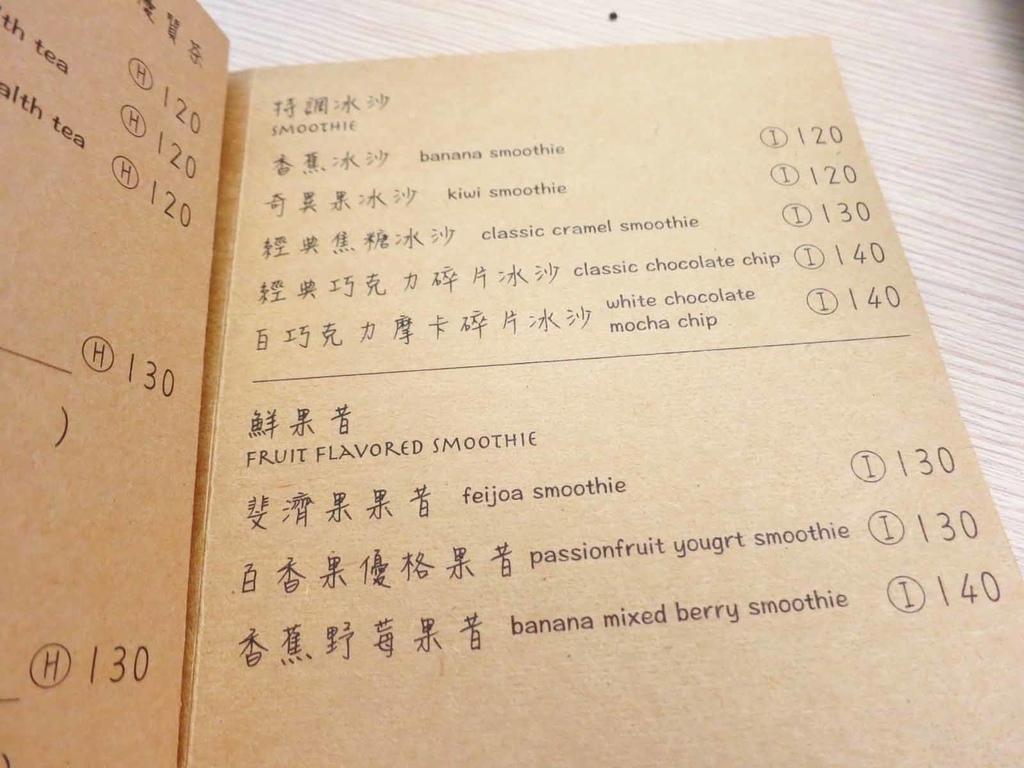 優質茶
th tea Ⓗ 120
alth tea Ⓗ 120
Ⓗ 120
Ⓗ 130
)
Ⓗ 130
特調冰沙
SMOOTHIE
香蕉冰沙 banana smoothie Ⓘ 120
奇異果冰沙 kiwi smoothie Ⓘ 120
經典焦糖冰沙 classic cramel smoothie Ⓘ 130
經典巧克力碎片冰沙 classic chocolate chip Ⓘ 140
白巧克力摩卡碎片冰沙 white chocolate
mocha chip Ⓘ 140
鮮果昔
FRUIT FLAVORED SMOOTHIE
斐濟果果昔 feijoa smoothie Ⓘ 130
百香果優格果昔 passionfruit yougrt smoothie Ⓘ 130
香蕉野莓果昔 banana mixed berry smoothie Ⓘ 140